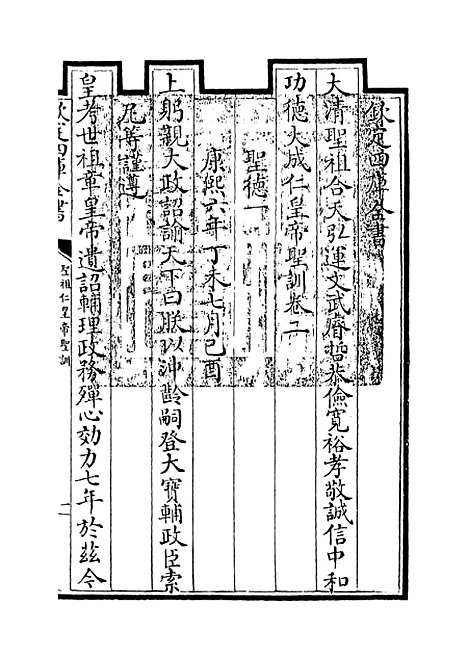 欽定四庫全書
大清聖祖合天弘運文武睿哲恭儉寬裕孝敬誠信中和
功德大成仁皇帝聖訓卷二
聖德一
康熙六年丁未七月己酉
上躬親大政詔諭天下曰朕以沖齡嗣登大寶輔政臣索
尼等謹遵
皇考世祖章皇帝遺詔輔理政務殫心効力七年於茲今
欽定四庫全書
聖祖仁皇帝聖訓